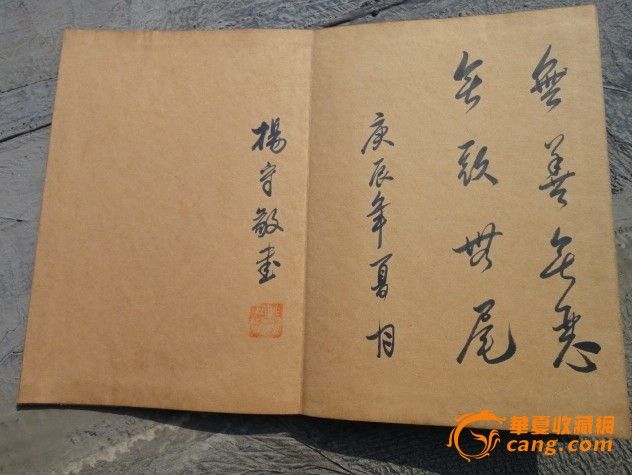 無善無惡
無頭無尾
庚辰年夏月
楊守敬書
華夏收藏網
cang.com